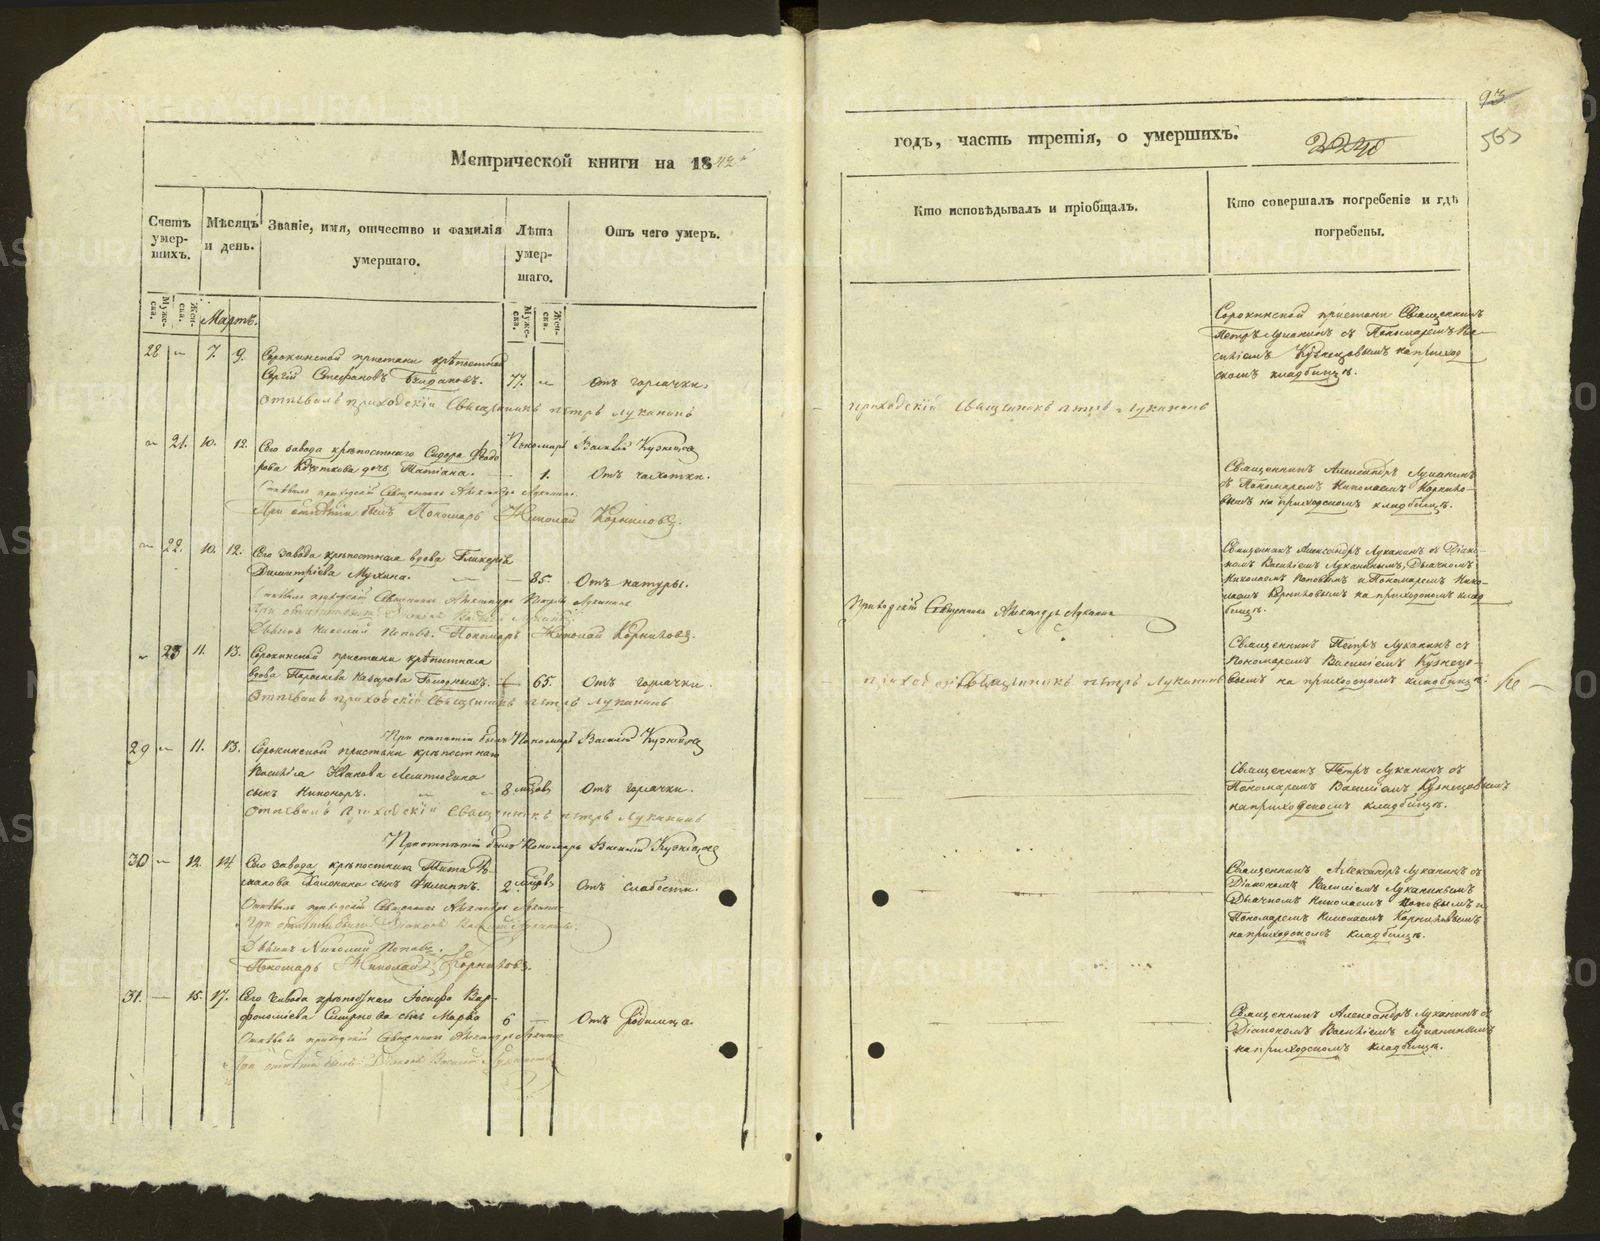 Метрической книги на 1842й
Счетъ умер-
шихъ.
Мѣсяцъ
и день.
Званіе, имя, отчество и фамилія
умершаго.
Лѣта
умер-
шаго.
Отъ чего умеръ.
Муже-
ска.
Жен-
ска.
Муже-
ска.
Жен-
ска.
Мартъ.
28 7. 9. Сорокинской пристани крѣпостной
Сергій Стефановъ 77. Отъ горячки.
Отпѣвалъ приходскій Священникъ Петръ Луканинъ
Пономарь Василій Кузнецов
21. 10. 12. Сего завода крѣпостнаго Сидора Ѳедо
рова дочь Татіана. 1. Отъ чахотки.
Отпѣвалъ приходскій Священникъ Александръ Луканинъ
При отпѣтіи былъ Пономарь Николай Корниловъ.
22. 10. 12. Сего завода крѣпостная вдова Гликерія
Димитріева Мухина. 85. Отъ натуры.
Отпѣвалъ приходскій Священникъ Александръ Петровъ Луканинъ
Дьячекъ Николай Поповъ. Пономарь Николай Корниловъ.
23 11. 13. Сорокинской пристани крѣпостная
вдова 65. Отъ горячки.
Отпѣвалъ приходскій Священникъ Петръ Луканинъ
При отпѣтіи былъ Пономарь Василій Кузнецов
29 11. 13. Сорокинской пристани крѣпостнаго
Василья Иванова
сынъ Никоноръ. 8 мѣсяцов Отъ горячки.
Отпѣвалъ Приходскій Священникъ Петръ Луканинъ
При отпѣтіи былъ Пономарь Василій Кузнецов
30 12. 14. Сего завода крѣпостнаго Тита
сынъ Филиппъ. 2. Отъ слабости.
Отпѣвалъ приходскій Священникъ Александръ Лукани-
При отпѣтіи были: Діаконъ Василій Луканинъ.
Дьячекъ Николай Поповъ.
Пономарь Николай Корниловъ.
31. 15. 17. Сего завода крѣпостнаго Іосифа Вар-
фоломѣева Смирнова сынъ Марко 6 Отъ родимца.
Отпѣвалъ приходскій Священникъ Александръ Лукани-
При отпѣтіи былъ: Діаконъ Василій Луканинъ
93
годъ, часть третія, о умершихъ.
Кто исповѣдывалъ и пріобщалъ.
Кто совершалъ погребеніе и гдѣ
погребены.
Сорокинской пристани Священникъ
Петръ Луканинъ съ Пономаремъ Ва-
силіемъ Кузнецовымъ на приход
скомъ кладбищѣ.
приходскій Священникъ Петръ Луканинъ
Священникъ Александръ Луканинъ
съ Пономаремъ Николаемъ Корнило-
вымъ на приходскомъ кладбищѣ.
Священникъ Александръ Луканинъ съ Діако-
номъ Василіемъ Луканинымъ, Дьячкомъ
Николаемъ Поповымъ и Пономаремъ Нико-
лаемъ Корниловымъ на приходскомъ клад
бищѣ.
Приходскій Священникъ Александръ Луканинъ
Священникъ Петръ Луканинъ съ
Пономаремъ Василіемъ Кузнецо-
вымъ на приходскомъ кладбищѣ.
приходскій Священникъ Петръ Луканинъ
Священникъ Петръ Луканинъ съ
Пономаремъ Василіемъ Кузнецовымъ
на приходскомъ кладбищѣ.
Священникъ Александръ Луканинъ съ
Діакономъ Василіемъ Луканинымъ
Дьячкомъ Николаемъ Поповымъ и
Пономаремъ Николаемъ Корниловымъ
на приходскомъ кладбищѣ.
Священникъ Александръ Луканинъ съ
Діакономъ Василіемъ Луканинымъ
на приходскомъ кладбищѣ.
METRIKI.GASO-URAL.RU